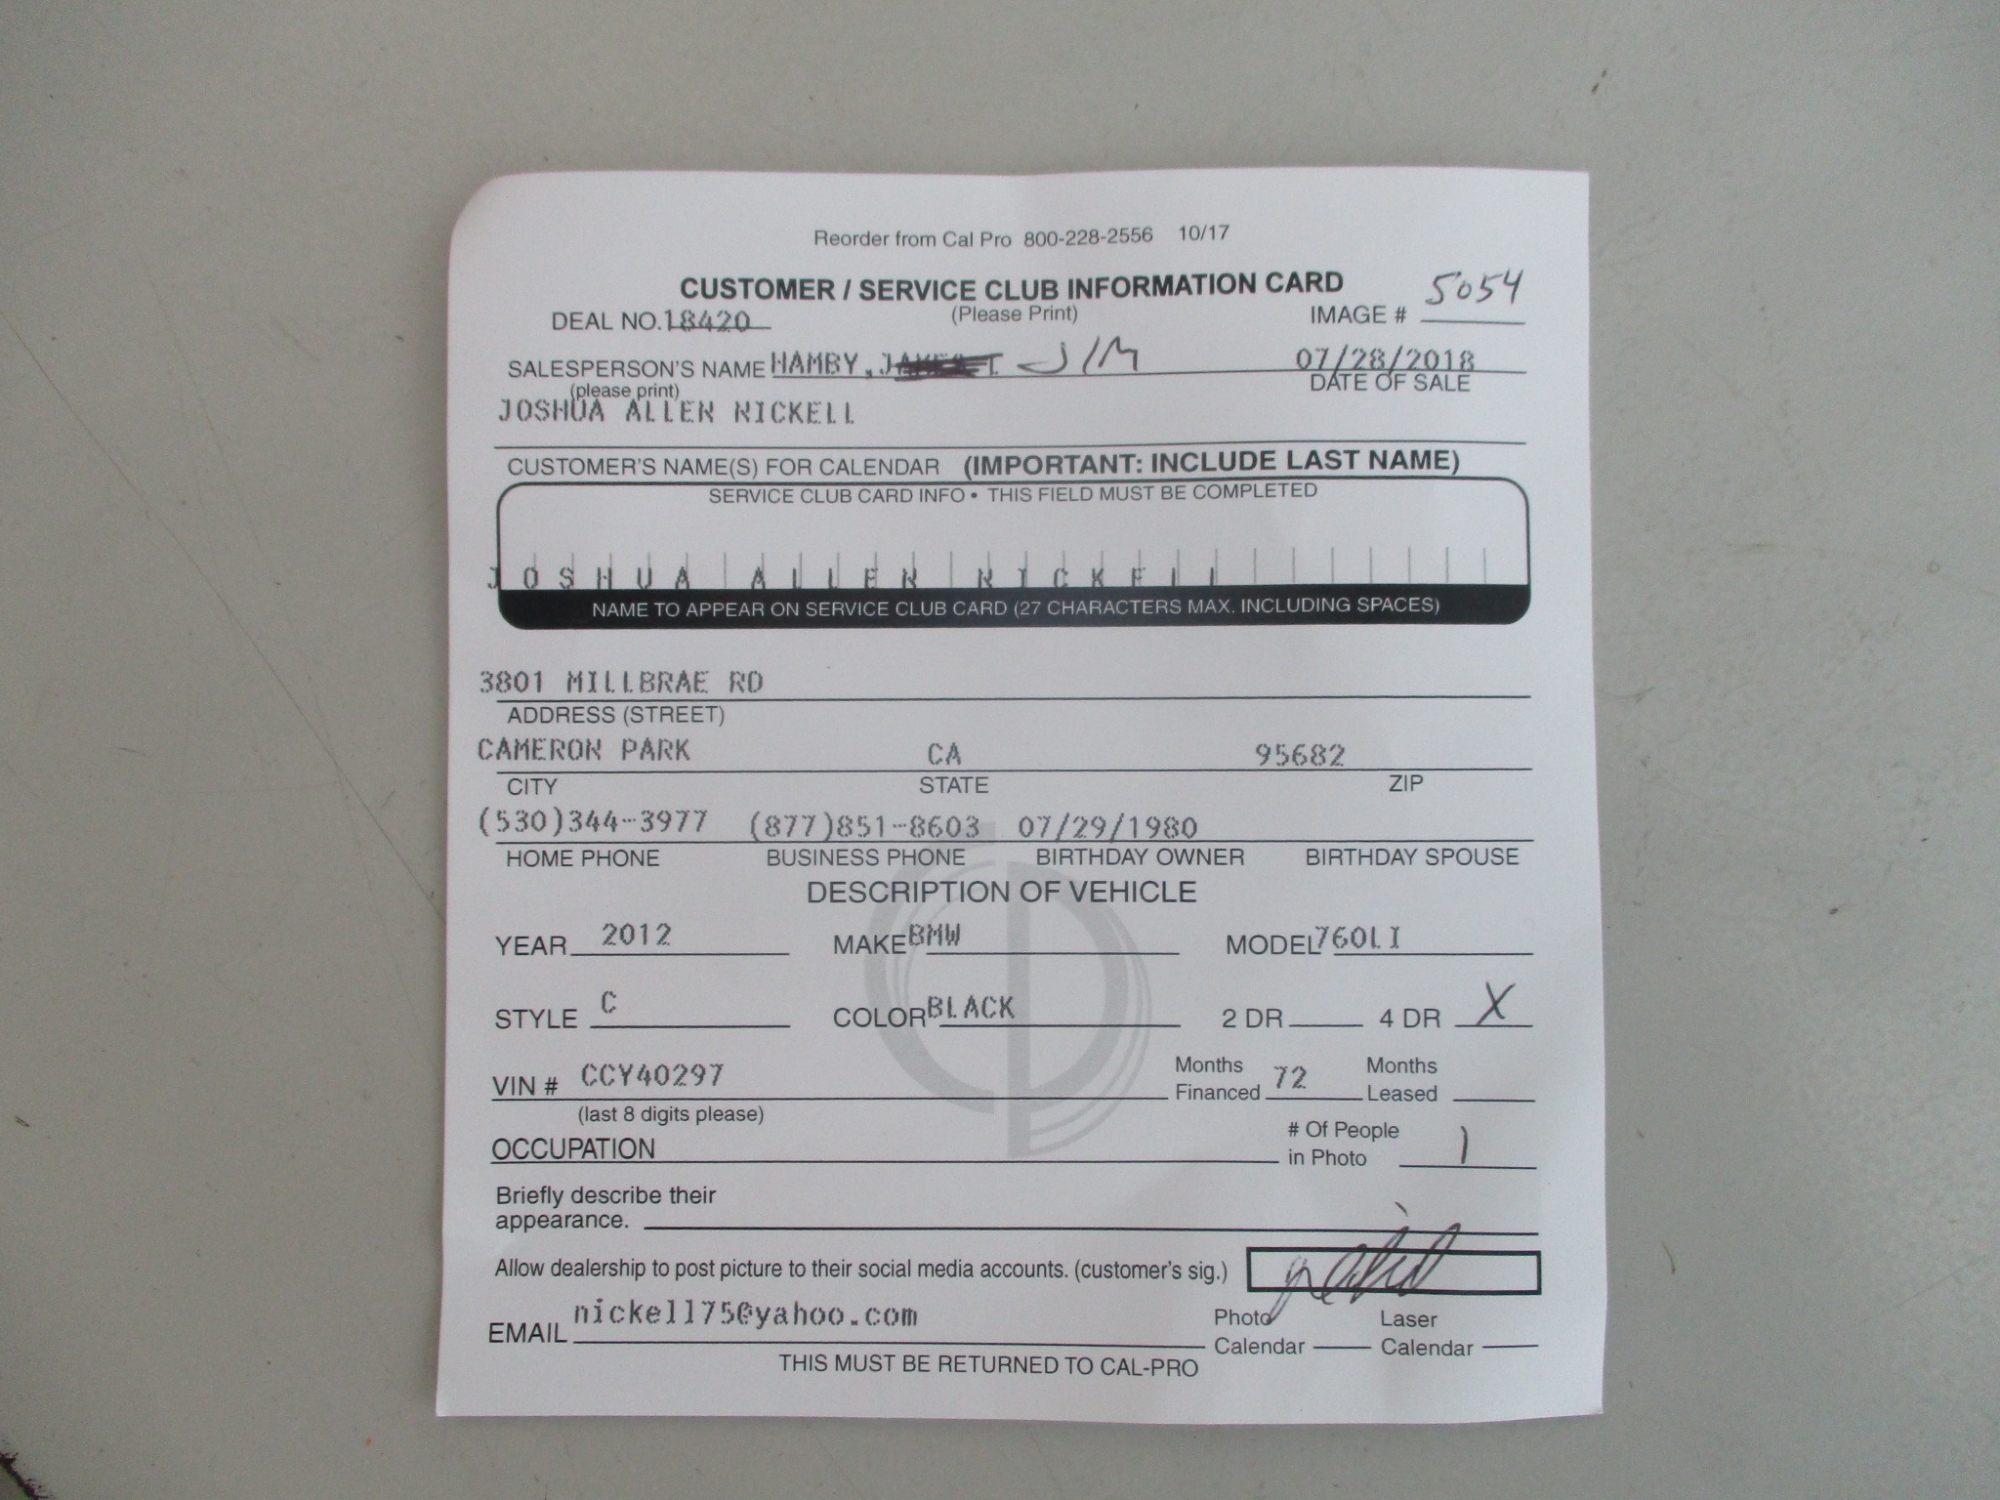 Reorder from Cal Pro 800-228-2556 10/17
CUSTOMER / SERVICE CLUB INFORMATION CARD
5054
DEAL NO. 18420 (Please Print) IMAGE #
SALESPERSON'S NAME HAMBY, JIM 07/28/2018
(please print) DATE OF SALE
JOSHUA ALLEN NICKELL
CUSTOMER'S NAME(S) FOR CALENDAR (IMPORTANT: INCLUDE LAST NAME)
SERVICE CLUB CARD INFO • THIS FIELD MUST BE COMPLETED
JOSHUA ALLEN NICKELL
NAME TO APPEAR ON SERVICE CLUB CARD (27 CHARACTERS MAX. INCLUDING SPACES)
3801 MILLBRAE RD
ADDRESS (STREET)
CAMERON PARK CA 95682
CITY STATE ZIP
(530)344-3977 (877)851-8603 07/29/1980
HOME PHONE BUSINESS PHONE BIRTHDAY OWNER BIRTHDAY SPOUSE
DESCRIPTION OF VEHICLE
YEAR 2012 MAKE BMW MODEL 760LI
STYLE C COLOR BLACK 2 DR 4 DR X
VIN # CCY40297 Months Financed 72 Months Leased
(last 8 digits please)
OCCUPATION # Of People in Photo 1
Briefly describe their
appearance.
Allow dealership to post picture to their social media accounts. (customer's sig.)
EMAIL nickell75@yahoo.com Photo Calendar Laser Calendar
THIS MUST BE RETURNED TO CAL-PRO